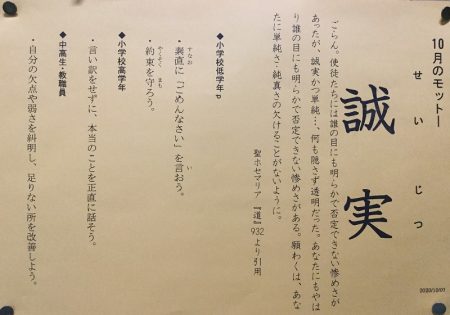 10月のモットー
せいじつ
誠実
ごらん。使徒たちには誰の目にも明らかで否定できない惨めさが
あったが、誠実かつ単純…、何も隠さず透明だった。あなたにもやは
り誰の目にも明らかで否定できない惨めさがある。願わくは、あな
たに単純さ・純真さの欠けることがないように。
聖ホセマリア『道』932より引用
◆小学校低学年
すなお
・素直に「ごめんなさい」を言おう。
やくそく まも
・約束を守ろう。
◆小学校高学年
・言い訳をせずに、本当のことを正直に話そう。
◆中高生・教職員
・自分の欠点や弱さを糾明し、足りない所を改善しよう。
2020/10/07